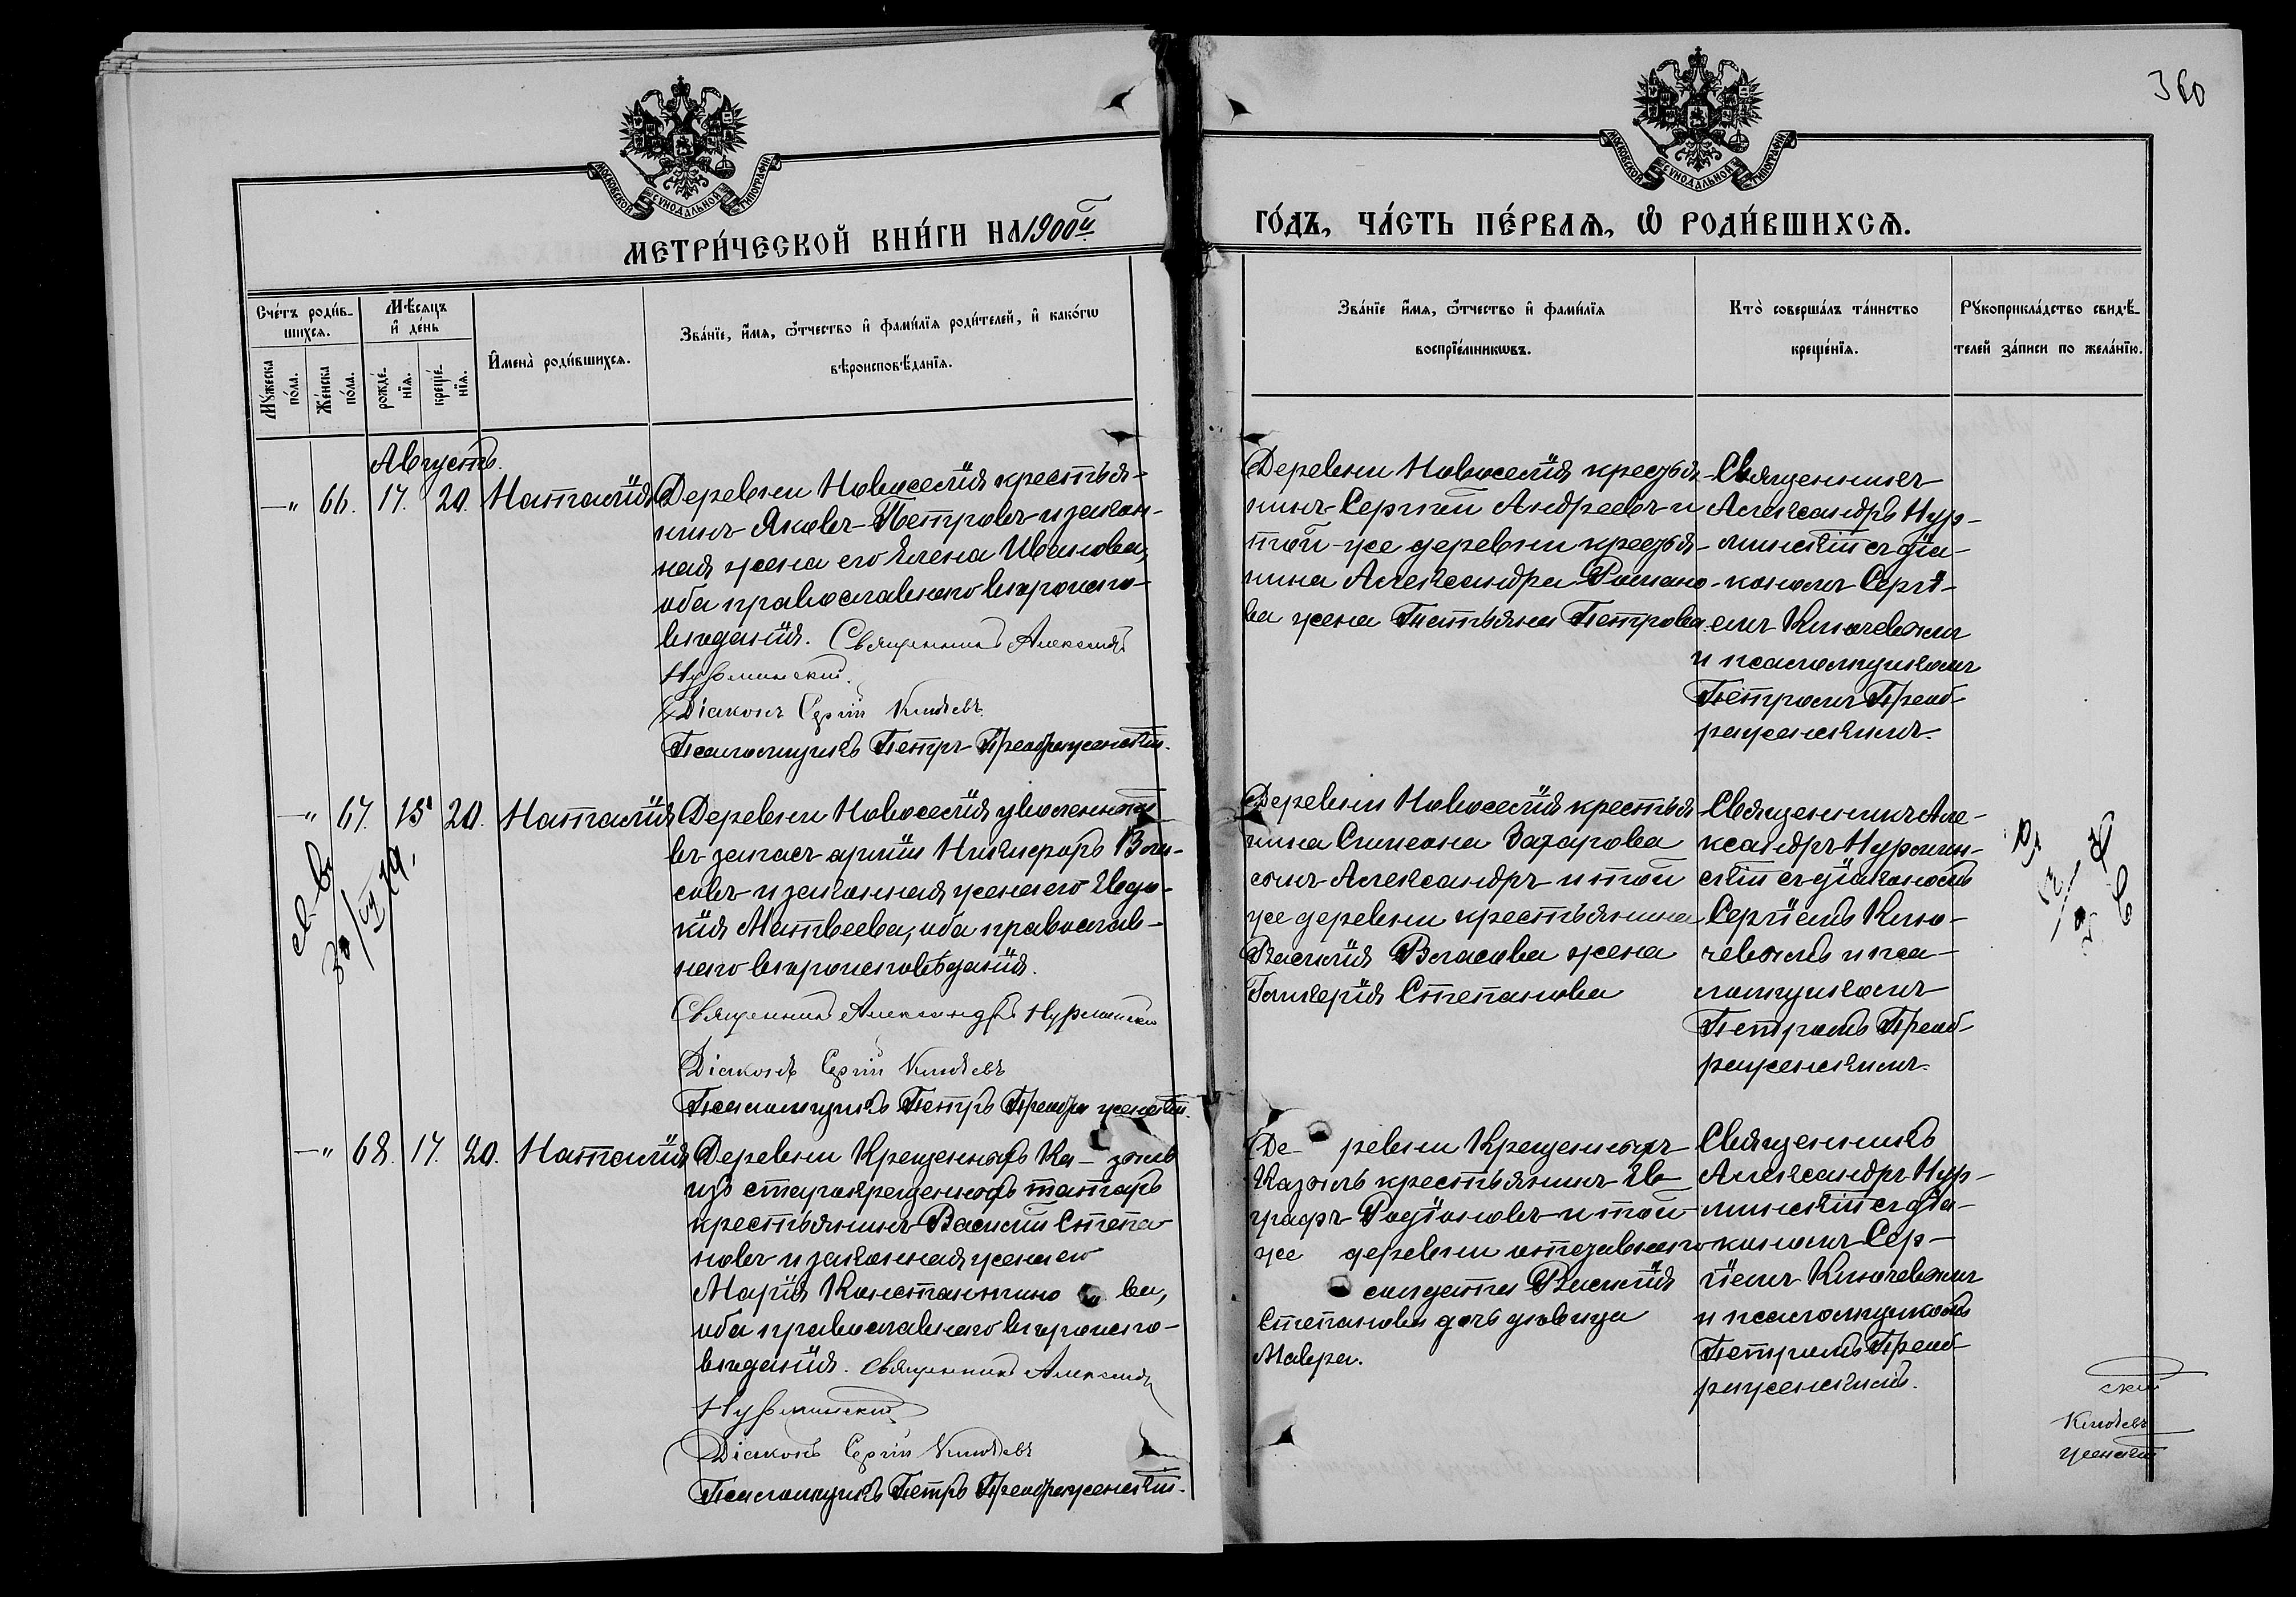 360
МОСКОВСКОЙ СѴНОДАЛЬНОЙ ТИПОГРАФІИ
МОСКОВСКОЙ СѴНОДАЛЬНОЙ ТИПОГРАФІИ
МЕТРИ́ЧЕСКОЙ КНИ́ГИ НА 1900й
ГО́ДЪ, ЧА́СТЬ ПЕ́РВАѦ, Ѽ РОДИ́ВШИХСѦ.
Сче́тъ роди́в-
шихсѧ.
Мѣ́сѧцъ
и҆ де́нь
Мꙋ́жеска
по́ла.
Же́нска
по́ла.
рожде́-
нїѧ.
креще́-
нїѧ.
И҆мена̀ роди́вшихсѧ.
Зва́нїе, и҆́мѧ, ѻ҆́тчество и҆ фамѝлїѧ роди́телей, и҆ како́гѡ
вѣроисповѣ́данїѧ.
Зва́нїе и҆́мѧ, ѻ҆́тчество и҆ фами́лїѧ
воспрїе́мникѡвъ.
Кто̀ соверша́лъ та́инство
креще́нїѧ.
Рꙋкоприкла́дство свидѣ́-
телей за́писи по жела́нїю.
Августъ.
—" 66. 17. 20. Наталія
Деревни Новоселія крестья-
нинъ Яковъ Петровъ и закон-
ная жена его Елена Иванова,
оба православнаго вѣроиспо-
вѣданія. Священникъ Александръ
Нурминскій.
Діаконъ Сергій Ключевъ.
Псаломщикъ Петръ Преображенскій.
Деревни Новоселія крестья-
нинъ Сергій Андреевъ и
той-же деревни крестья-
нина Александра Романо-
ва жена Татьяна Петрова.
Священникъ
Александръ Нур-
минскій съ діа-
кономъ Сергі-
емъ Ключевымъ
и псаломщикомъ
Петромъ Преоб-
раженскимъ.
—" 67. 15 20. Наталія
Деревни Новоселія уволенный
въ запасъ арміи Никифоръ Вла-
совъ и законная жена его Евдо-
кія Матвеева, оба православ-
наго вѣроисповѣданія.
Священникъ Александръ Нурминскій
Діаконъ Сергій Ключевъ
Псаломщикъ Петръ Преображенскій.
св-во
Деревни Новоселія крестья
нина Симеона Захарова
сынъ Александръ и той
же деревни крестьянина
Василія Власова жена
Гликерія Степанова
Священникъ Але-
ксандръ Нурмин-
скій съ діакономъ
Сергіемъ Клю-
чевымъ и пса-
ломщикомъ
Петромъ Преоб-
раженскимъ.
—" 68. 17. 20. Наталія
Деревни Крещеныхъ Ка-зыль
изъ старокрещеныхъ татаръ
крестьянинъ Василій Степа
новъ и законная жена его
Марія Константино ва,
оба православнаго вѣроиспо-
вѣданія. Священникъ Александръ
Нурминскій
Діаконъ Сергій Ключевъ
Псаломщикъ Петръ Преображенскій.
Де- ревни Крещеныхъ
Казыль крестьянинъ Ев
графъ Родіоновъ и той
же деревни отставнаго
солдата Василія
Степанова дочь дѣвица
Мавра.
Священникъ
Александръ Нур-
минскій съ діа-
кономъ Сер-
гіемъ Ключевымъ
и псаломщикомъ
Петромъ Преоб
раженскимъ.
скій
Ключевъ
женскій